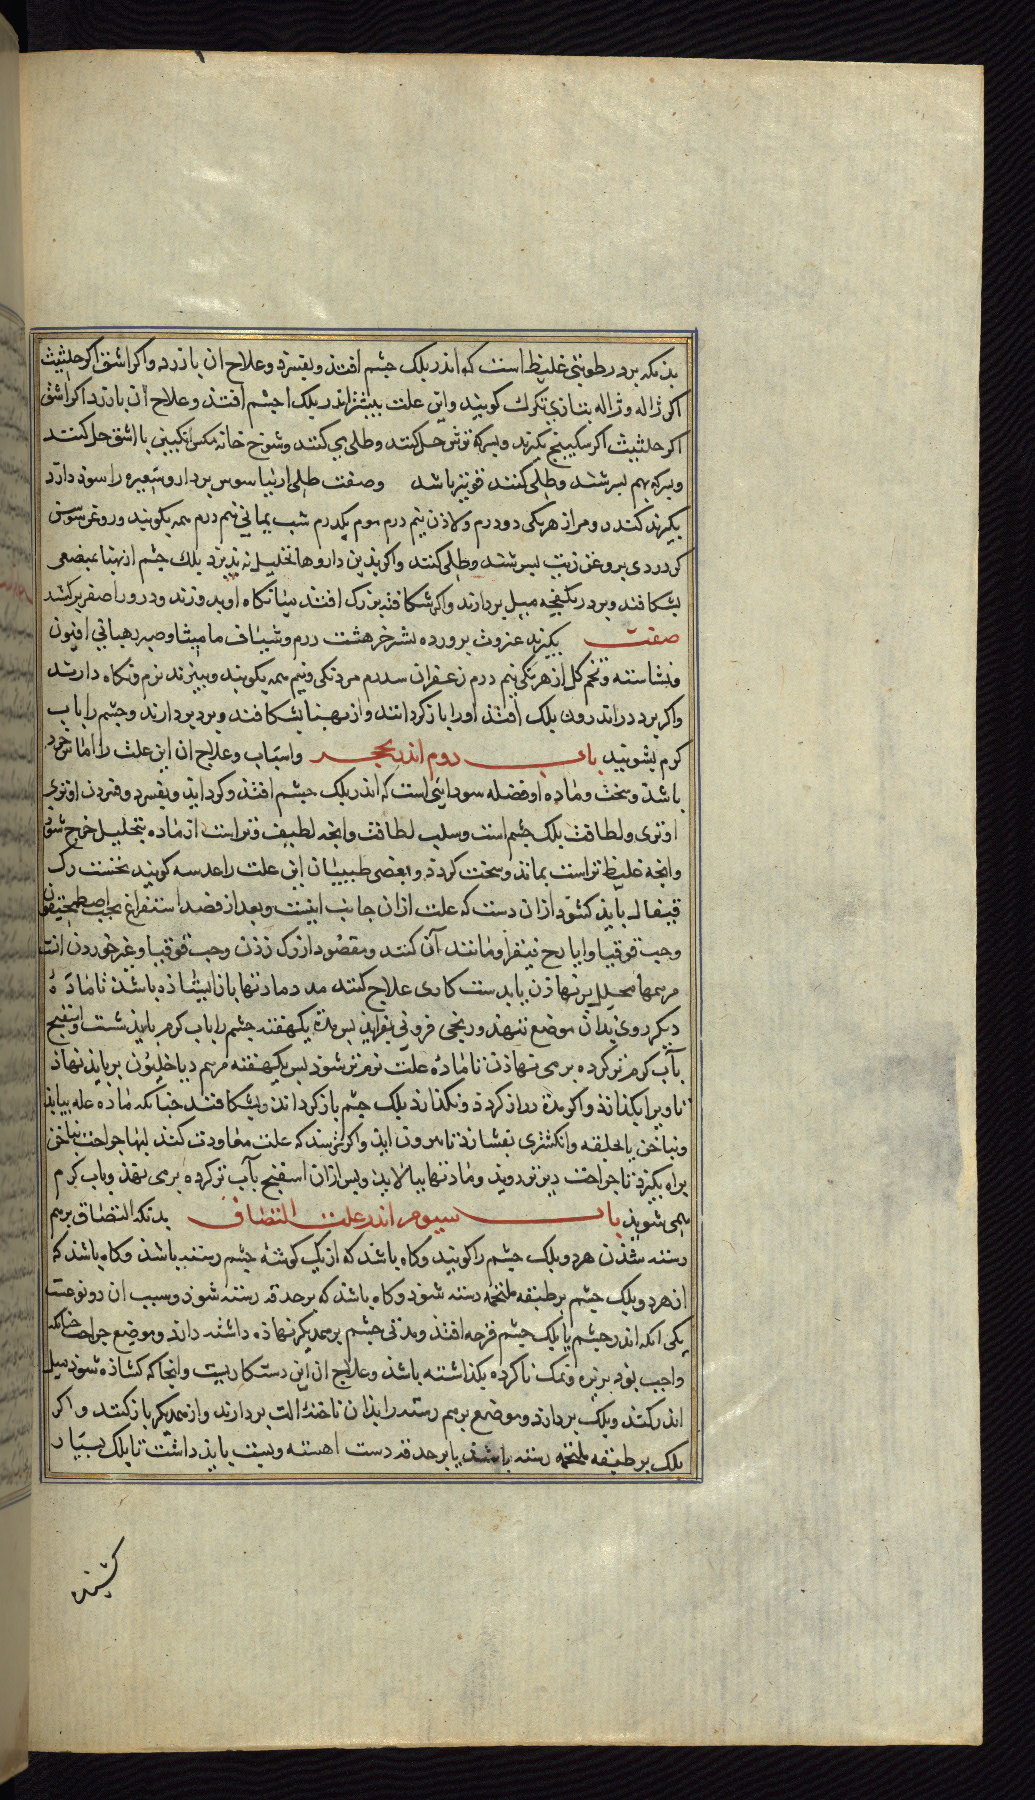 بذنکه برد رطوبتی غلیظ است که اندر پلک چشم افتذ و بفسرد و علاج ان بازرد و اکر اشق اکر حلتیت
اکر ژاله و ژاله بتازی تکرك کویند و این علت بیشتر اندر پلک چشم افتذ و علاج آن بازرد اکر اشق
اکر حلتیت اکر سکبینج بکیرند و بسرکه ترش حل کنند و طلی می کنند و شوخ خانه مکس انکبین با اشق حل کنند
و بسرکه بهم بسرشند و طلی کنند قویتر باشد و صفت طلی اربیاسوس برد را و شعیره را سوذ دارد
بکیرند کندر و مر از هر یکی دو درم ولاذن نیم درم موم یکدرم شب یمانی نیم درم همه بکوبند و روغن سوسن
کر دردی بروغن زیت بسرشند و طلی کنند و اکر بذین داروها تحلیل نه پذیرد پلك چشم از پهنا بمبضعی
بشکافند و برد ریکفجه میل بردارند و اکر شکافته بزرک افتذ میانکاه او بدوزند و ذرور اصفر برکنند
صفت بکیرند عنزروت پرورده بشیر خر هشت درم و شیاف مامیثا و صبر رهبانی افیون
و نشاسته و تخم کل از هر یکی نیم درم زعفران سدرم مر دنکی و نیم همه بکوبند و ببیزند نرم و نکاه دارند
واکر برد در اندرون پلک افتذ اورا بازکردانند و از پهنا بشکافند و برد بردارند و چشم را باب
کرم بشویند باب دوم اندر تحجر و اسباب و علاج ان این علت را اماس خرد
باشذ و سخت و ماده او فضله سودایی است که اندر پلک چشم افتذ و کرد ایذ و بفسرد و فسردن او تری
او تری و لطافت پلک چشم است و سلب لطافت و انچه لطیف تر است از ماده بتحلیل خرج شوذ
وانچه غلیظ تر است بماند و سخت کردذ و بعضی طبیبان این علت را عدسه کویند نخست رک
قیفال بباید کشوذ از ان دست که علت از ان جانب است و بعد از فصد استفراغ بحب اصطمخیقون
و حب قوقیا و ایارج فیقرا و مانند آن کنند و مقصود از رک زدن و حب قوقیا و غیر خوردن انست
مرهمها محلل برنهاذن بابد ست کاری علاج کنند مدد مادتها باز ایستاذه باشذ تا ماده
دیکر روی بذان موضع ننهذ و رنجی فزونی نفزاید بس مدة یکهفته چشم را باب کرم بایذ شست و اسفنج
بآب کرم تر کرده بر می نهاذن تا ماده علت نرم تر شوذ بس یکهفته مرهم دیاخلیون بر باید نهاذ
تا ویرا بکذاذ و اکر مدة دراز کردذ و نکذاذ پلک چشم بازکرداند و بشکافند چنانکه ماده علت بیاید
و بناخن یا بحلقه و انکشتری بفشارند تا بیرون ایذ و اکر ترسند که علت معاودت کند لبها جراحت بناخن
براه بکیرد تا جراحت دیرتر دویذ و مادتها بپالاید و بس از ان اسفنج بآب تر کرده بر می نهذ و باب کرم
همی شویذ باب سیوم اندر علت التصاق بدنکه التصاق برهم
رسته شذن هر دو پلک چشم را کویند و کاه باشذ که از یک کوشهٔ چشم رسته باشذ و کاه باشذ که
از هر دو پلک چشم بر طبقه ملتحمه رسته شوذ و کاه باشذ که بر حدقه رسته شوذ و سبب ان دو نوعست
یکی انکه اندر چشم یا پلک چشم قرحه افتذ و مدتی چشم بر همدیکر نهاذه داشته داند و موضع جراحت چنانکه
واجب بوذ بزیره و نمک ناکرده بکذاشته باشذ و علاج ان این دستکاریست و انجا که کشاذه شوذ میل
اندر کنند و پلک بردارند و موضع برهم رسته را بذان ناخنه الت بردارند و از همدیکر باز کنند و اکر
پلک بر طبقه ملتحمه رسته باشذ یا بر حدقه دست اهسته و بسف بایذ داشت تا پلک بسیار
کشیذه